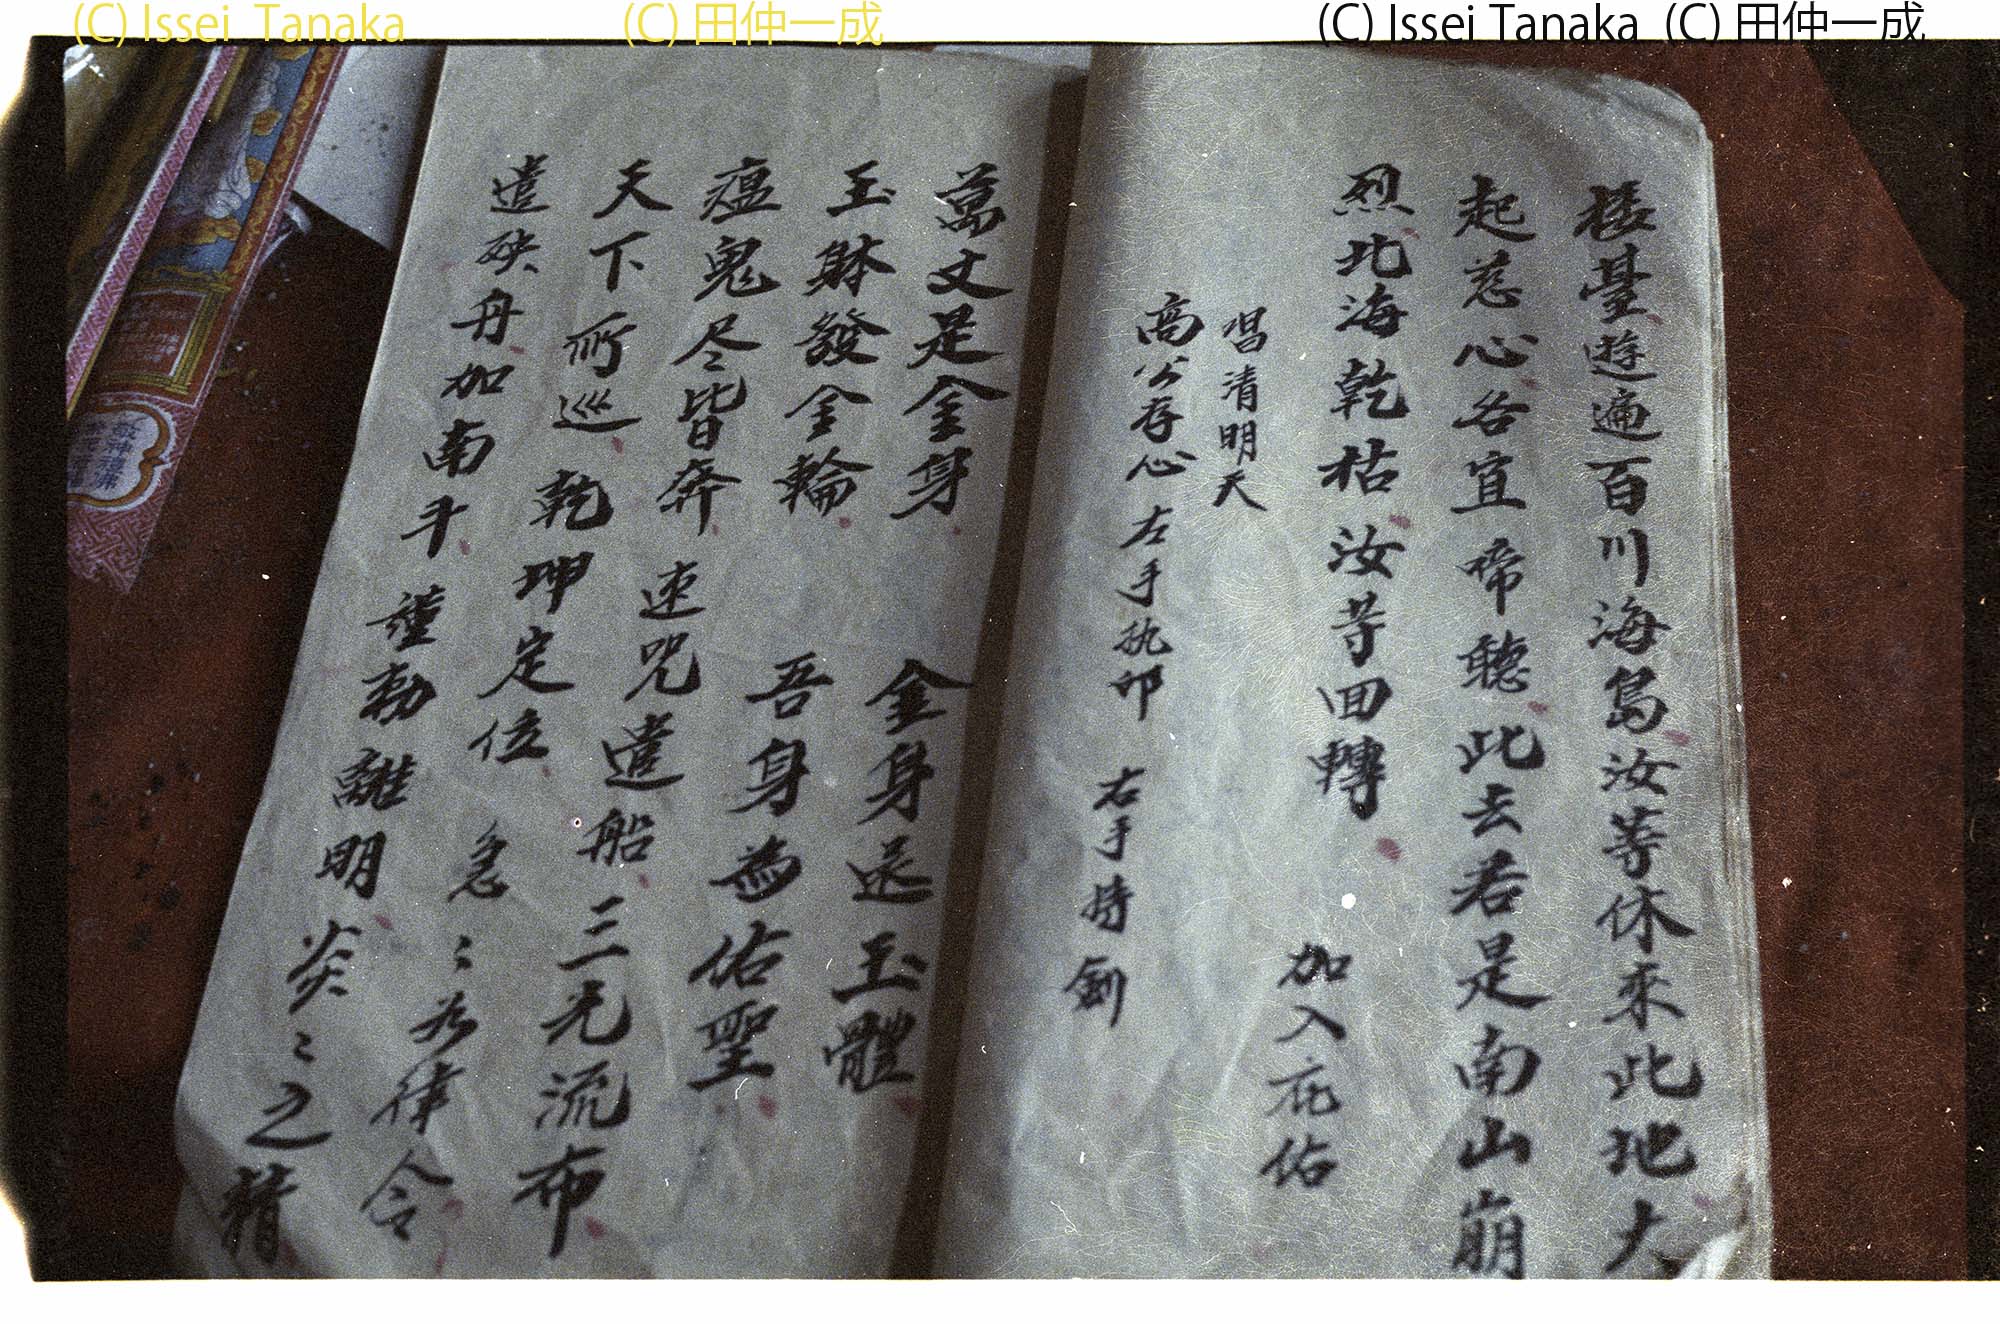 (C) Issei Tanaka
(C) 田仲一成
(C) Issei Tanaka (C) 田仲一成
楼臺遊遍百川海島汝等休來此地大
起慈心各宜啼聽此去若是南山崩
烈北海乾枯汝䓁回轉 加入庇佑
唱清明天
高公存心 左手执印 右手持劍
萬丈是金身 金身送玉體
玉躰發金輪 吾身為佑聖
瘟鬼尽皆奔 速咒遣船三光流布
天下所巡乾坤定位 急〻为律令
遣殃舟加南斗 謹勅離明炎〻之精
敬神